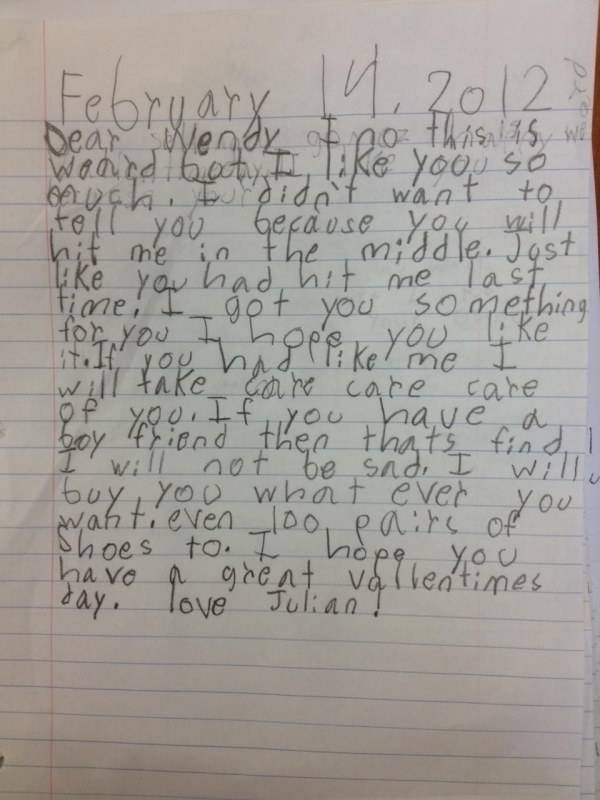 February 14, 2012
Dear Wendy I no this is
weard but I like yoou so
much. I didn't want to
tell you because you will
hit me in the middle. Just
like you had hit me last
time. I got you something
for you I hope you like
it. If you had like me I
will take care care care
of you. If you have a
boy friend then thats find
I will not be sad. I will
buy you what ever you
want. even 100 pairs of
Shoes to. I hope you
have a great vallentimes
day. love Julian!